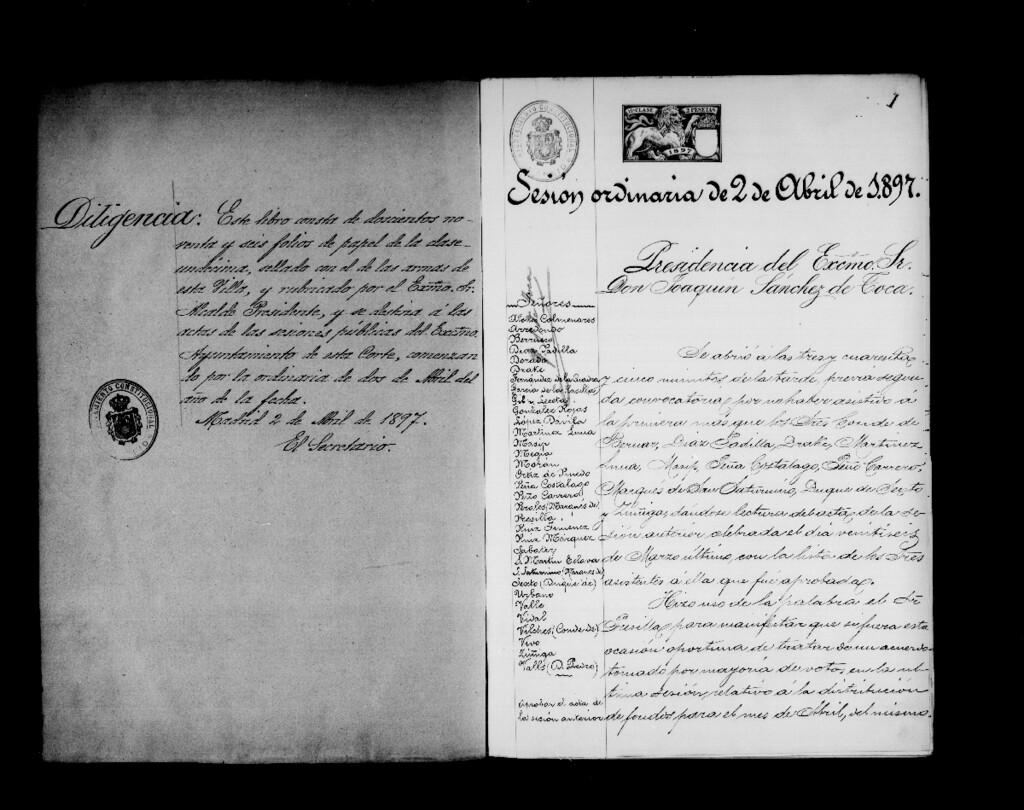 Diligencia: Este libro consta de doscientos no-
venta y seis folios de papel de la clase
undécima, sellado con el de las armas de
esta Villa, y rubricado por el Excmo. Sr.
Alcalde Presidente, y se destina á las
actas de las sesiones públicas del Excmo.
Ayuntamiento de esta Corte, comenzan
do por la ordinaria de dos de Abril del
año de la fecha.
Madrid 2 de Abril de 1897.
El Secretario.
AYUNTAMIENTO CONSTITUCIONAL
1
AYUNTAMIENTO CONSTITUCIONAL
11ª CLASE 2 PESETAS
1897
Sesión ordinaria de 2 de Abril de 1.897.
Presidencia del Excmo. Sr.
Don Joaquin Sánchez de Toca.
Señores
Colmenares
Arredondo
Berrueco
Diaz Padilla
Dorado
Drake
Fernández de la Cuadra
Garcia de los Rasillas
Gil y Leceta
González Rojas
López Dávila
Martinez Luna
Masip
Megia
Morán
Ortiz de Pinedo
Peña Costalago
Pozo Carrero
Perales (Marqués de)
Presilla
Ruiz Jimenez
Ruiz Márquez
Sabater
S. Martin Eslava
S. Saturnino (Marqués de)
Sexto (Duque de)
Urbano
Valle
Vidal
Vilches (Conde de)
Vivo
Zúñiga
Valls (D. Pedro)
Aprobar el acta de
la sesión anterior
Se abrió á las tres y cuarenta
y cinco minutos de la tarde, previa segun-
da convocatoria, por no haber asistido á
la primera más que los Sres Conde de
Bernar, Diaz Padilla, Drake, Martinez
Luna, Masip, Peña Costalago, Pozo Carrero,
Marqués de San Saturnino, Duque de Sexto
y Zúñiga, dandose lectura del acta de la se-
sión anterior celebrada el dia veintiseis
de Marzo último, con la lista de los Sres
asistentes á ella que fué aprobada.
Hizo uso de la palabra el Sr
Presilla, para manifestar que si fuera esta
ocasión oportuna de tratar de un acuerdo
tomado por mayoría de votos, en la úl-
tima sesión, relativo á la distribución
de fondos para el mes de Abril, del mismo